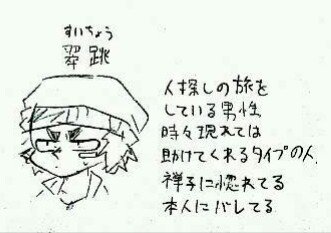 すいちょう
翠跳
人探しの旅を
している男性
時々現れては
助けてくれるタイプの人
禅子に惚れてる
本人にバレてる